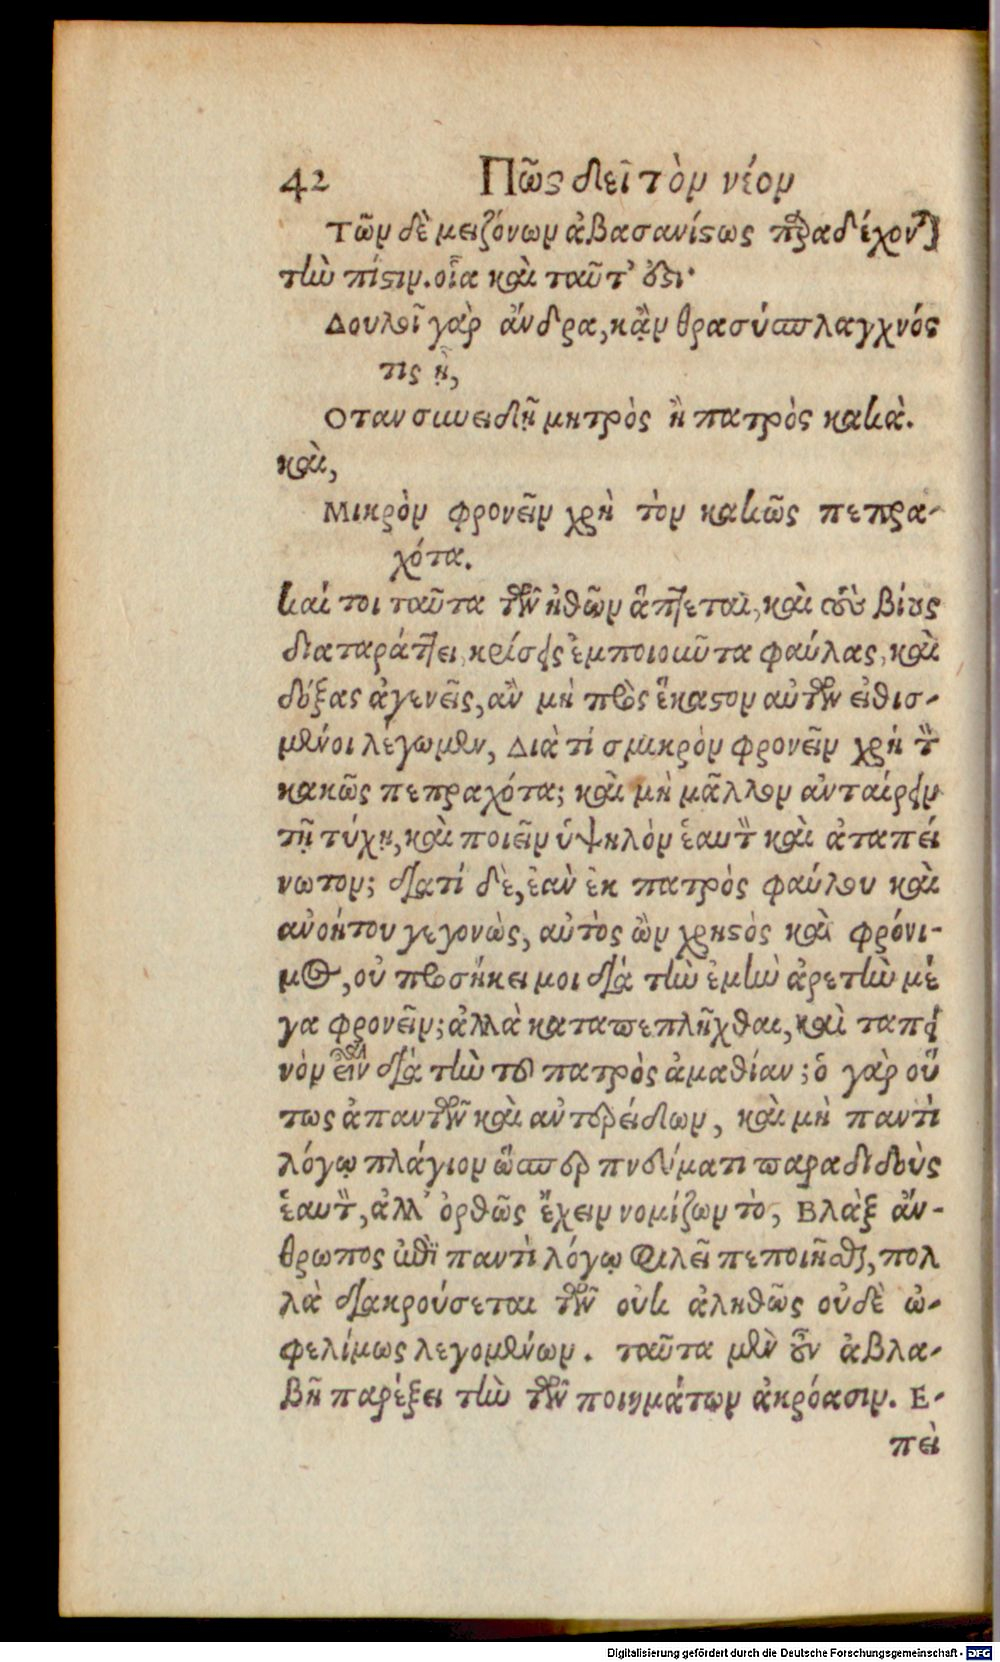 42 Πῶς δεῖ τὸν νέον
Τῶν δὲ μειζόνων ἀβασανίστως παραδέχονται
τὴν πίστιν. οἷα καὶ ταῦτ' ἐστι·
Δουλοῖ γὰρ ἄνδρα, κᾂν θρασύσπλαγχνός
τις ᾖ,
Οταν συνειδῇ μητρὸς ἢ πατρὸς κακὰ.
καὶ,
Μικρὸν φρονεῖν χρὴ τὸν κακῶς πεπρα-
χότα.
καί τοι ταῦτα τῶν ἠθῶν ἅπτεται, καὶ τοὺς βίους
διαταράττει, κρίσεις ἐμποιοῦντα φαύλας, καὶ
δόξας ἀγενεῖς, ἂν μὴ πρὸς ἕκαστον αὐτῶν εἰθισ-
μένοι λέγωμεν, Διὰ τί σμικρὸν φρονεῖν χρὴ τὸν
κακῶς πεπραχότα; καὶ μὴ μᾶλλον ἀνταίρειν
τῇ τύχῃ, καὶ ποιεῖν ὑψηλὸν ἑαυτὸν καὶ ἀταπεί
νωτον; διατί δὲ, ἐὰν ἐκ πατρὸς φαύλου καὶ
ἀνοήτου γεγονὼς, αὐτὸς ὢν χρηστὸς καὶ φρόνι-
μος, οὐ προσήκει μοι διὰ τὴν ἐμὴν ἀρετὴν μέ
γα φρονεῖν; ἀλλὰ καταπεπλῆχθαι, καὶ ταπει
νὸν εἶναι διὰ τὴν τοῦ πατρὸς ἀμαθίαν; ὁ γὰρ οὕ
τως ἀπαντῶν καὶ ἀντερείδων, καὶ μὴ παντὶ
λόγῳ πλάγιον ὥσπερ πνεύματι παραδιδοὺς
ἑαυτὸν, ἀλλ' ὀρθῶς ἔχειν νομίζων τὸ, Βλὰξ ἄν-
θρωπος ἐπὶ παντὶ λόγῳ φιλεῖ πεποιῆσθαι, πολ
λὰ διακρούσεται τῶν οὐκ ἀληθῶς οὐδὲ ὠ-
φελίμως λεγομένων. ταῦτα μὲν οὖν ἀβλα-
βῆ παρέξει τὴν τῶν ποιημάτων ἀκρόασιν. Ε-
πεὶ
Digitalisierung gefördert durch die Deutsche Forschungsgemeinschaft - DFG